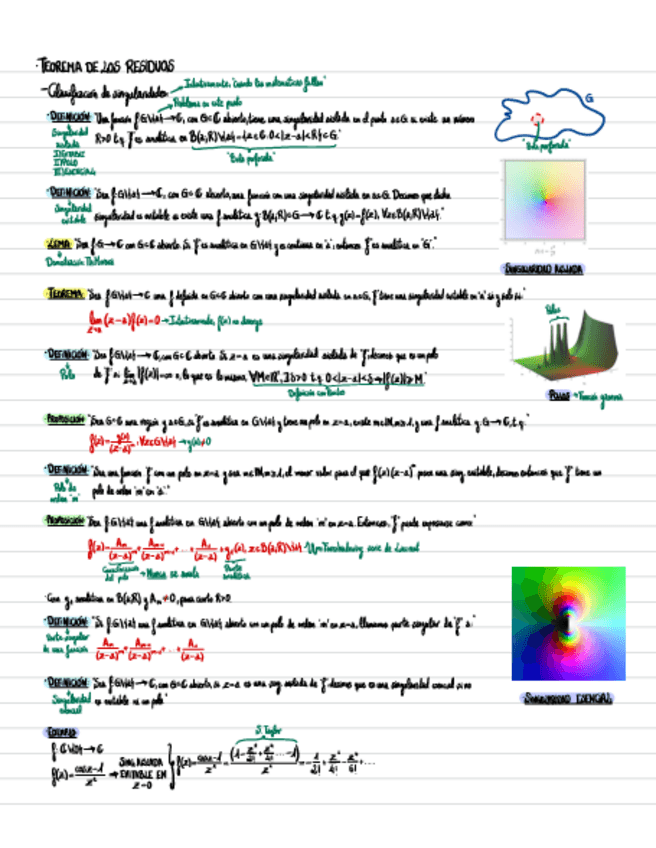 ·TEOREMA DE LOS RESIDUOS
-Clasificación de singularidades → Intuitivamente, "cuando las matemáticas fallan"
Problemas en este punto
·DEFINICIÓN: "Una función f:G\{a}→ℂ, con G⊂ℂ abierto, tiene una singularidad aislada en el punto a∈G si existe un número
Singularidad aislada
R>0 t.q. f es analítica en B(a,R)\{a}={z∈ℂ: 0<|z-a|<R}⊂G."
"Bola perforada"
G
"Bola perforada"
I) EVITABLE
II) POLO
III) ESENCIAL
·DEFINICIÓN: "Sea f:G\{a}→ℂ, con G⊂ℂ abierto, una función con una singularidad aislada en a∈G. Decimos que dicha
Singularidad evitable
singularidad es evitable si existe una f analítica g:B(a,R)⊂G→ℂ t.q. g(z)=f(z), ∀z∈B(a,R)\{a}."
·LEMA: "Sea f:G→ℂ con G⊂ℂ abierto. Si f es analítica en G\{a} y es continua en 'a', entonces f es analítica en 'G'."
Demostración Th. Morera
SINGULARIDAD AISLADA
·TEOREMA: "Sea f:G\{a}→ℂ una f definida en G⊂ℂ abierto con una singularidad aislada en a∈G, f tiene una singularidad evitable en 'a' si y solo si:"
lim (z-a)f(z)=0 → Intuitivamente, f(z) no diverge
z→a
Polos
·DEFINICIÓN: "Sea f:G\{a}→ℂ, con G⊂ℂ abierto. Si z=a es una singularidad aislada de f, decimos que es un polo
Polo
de f si lim |f(z)|=∞ o, lo que es lo mismo, ∀M∈ℝ⁺, ∃δ>0 t.q. 0<|z-a|<δ→|f(z)|≥M."
Definición con límites
POLOS → Función gamma
·PROPOSICIÓN: "Sea G⊂ℂ una región y a∈G, si f es analítica en G\{a} y tiene un polo en z=a, existe m∈ℕ, m≥1, y una f analítica g:G→ℂ, t.q."
f(z)=g(z)/(z-a)ᵐ, ∀z∈G\{a} → g(a)≠0
·DEFINICIÓN: "Sea una función f con un polo en z=a y sea m∈ℕ, m≥1, el menor valor para el que f(z)(z-a)ᵐ posee una sing. evitable, decimos entonces que f tiene un
Polo de orden 'm'
polo de orden 'm' en 'a'."
·PROPOSICIÓN: "Sea f:G\{a} una f analítica en G\{a} abierto con un polo de orden 'm' en z=a. Entonces, f puede expresarse como:"
f(z)=Aₘ/(z-a)ᵐ+Aₘ₋₁/(z-a)ᵐ⁻¹+...+A₁/(z-a)+g₁(z), z∈B(a,R)\{a}
serie de Laurent
del polo → Nunca se anula
Parte analítica
·Con g₁ analítica en B(a,R) y Aₘ≠0, para cierto R>0.
·DEFINICIÓN: "Si f:G\{a} una f analítica en G\{a} abierto con un polo de orden 'm' en z=a, llamamos parte singular de f a:"
Parte singular de una función
Aₘ/(z-a)ᵐ+Aₘ₋₁/(z-a)ᵐ⁻¹+...+A₁/(z-a)
·DEFINICIÓN: "Sea f:G\{a}→ℂ, con G⊂ℂ abierto, si z=a es una sing. aislada de f decimos que es una singularidad esencial si no
Singularidad esencial
es evitable ni un polo."
SINGULARIDAD ESENCIAL
EJEMPLO
S. Taylor
f:ℂ\{a}→ℂ
f(z)=(cosz-1)/z² → SING. AISLADA EVITABLE EN z=0
f(z)=(cosz-1)/z²=(1-z²/2!+z⁴/4!...-1)/z²=-1/2!+z²/4!-z⁴/6!+...